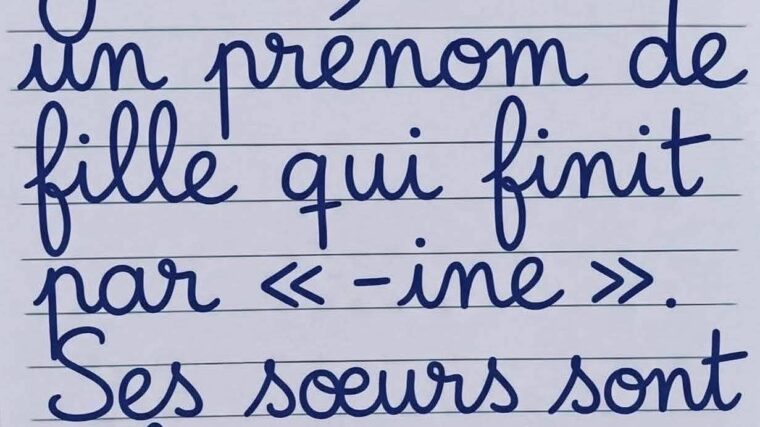 un prénom de
fille qui finit
par « -ine ».
Ses sœurs sont